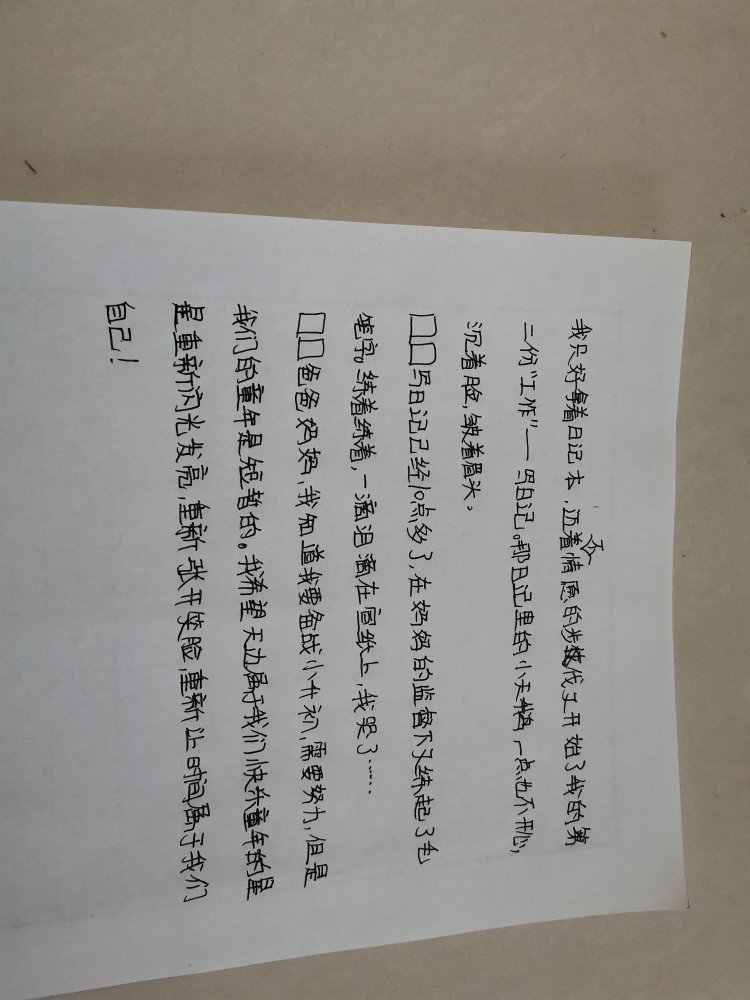 我只好拿着日记本，迈着不情愿的步伐又开始了我的第
二份“工作”——写日记。那日记里的小天鹅，一点也不开心，
沉着脸，皱着眉头。
□□写日记已经10点多了，在妈妈的监督下又练起了毛
笔字。练着练着，一滴泪滴在宣纸上，我哭了……
□□爸爸妈妈，我知道我要备战小升初，需要努力，但是
我们的童年是短暂的。我希望天边属于我们快乐童年的星
星重新闪光发亮，重新张开笑脸，重新让时间属于我们
自己！